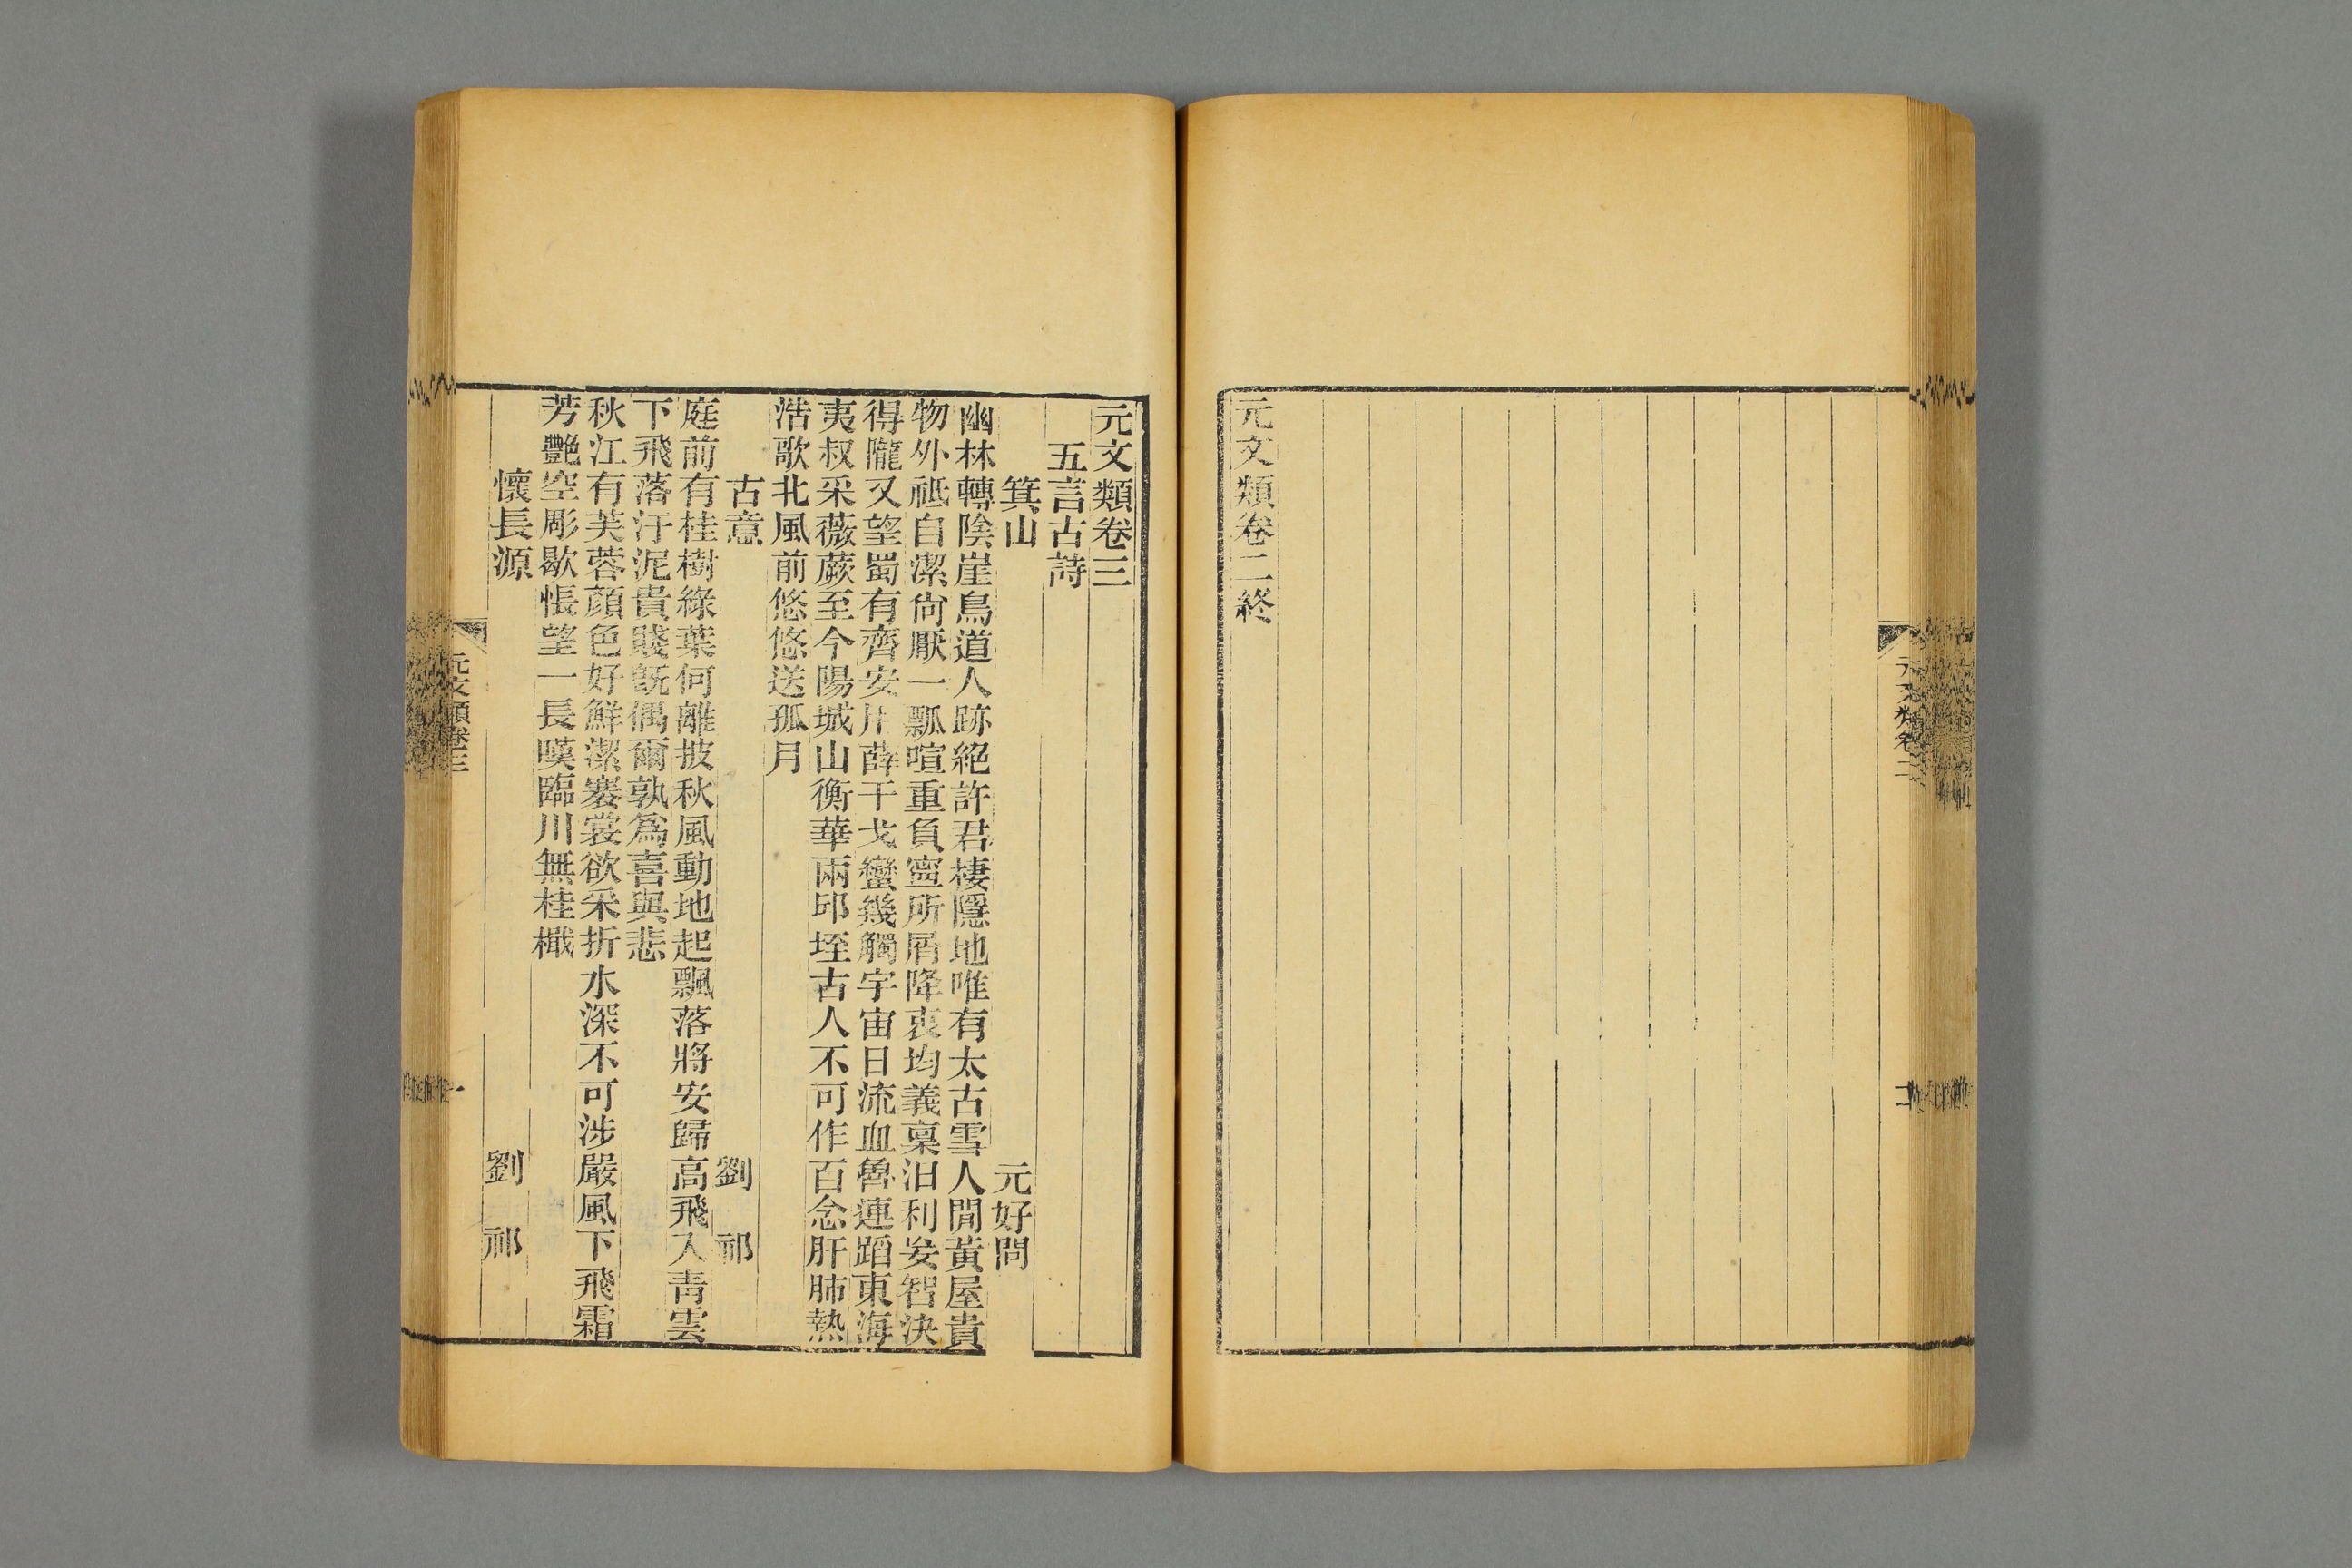 元文類卷二終
元文類卷三
五言古詩
箕山 元好問
幽林轉陰崖鳥道人跡絕許君棲隱地唯有太古雪人閒黃屋貴
物外祗自潔尙厭一瓢喧重負寧所屑降衷均義稟汩利妄智決
得隴又望蜀有齊安用薛干戈蠻幾觸宇宙日流血魯連蹈東海
夷叔采薇蕨至今陽城山衡華兩邱垤古人不可作百念肝肺熱
浩歌北風前悠悠送孤月
古意 劉祁
庭前有桂樹綠葉何離披秋風動地起飄落將安歸高飛入靑雲
下飛落汙泥貴賤既偶爾孰爲喜與悲
秋江有芙蓉顏色好鮮潔褰裳欲采折水深不可涉嚴風下飛霜
芳艷空彫歇悵望一長嘆臨川無桂檝
懷長源 劉祁
元文類卷三
一